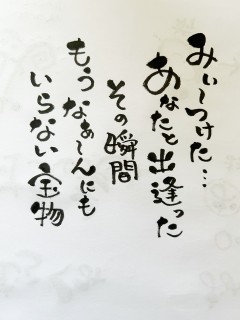 みぃ〜つけた…
あなたと出逢った
その瞬間
もうなぁ〜んにも
いらない宝物